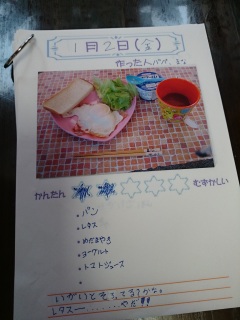 1月2日(金)
作った人パパ、まな
かんたん むずかしい
・パン
・レタス
・めだまやき
・ヨーグルト
・トマトジュース
・
いがいとそだってるかな。
レタスー……やだ!!